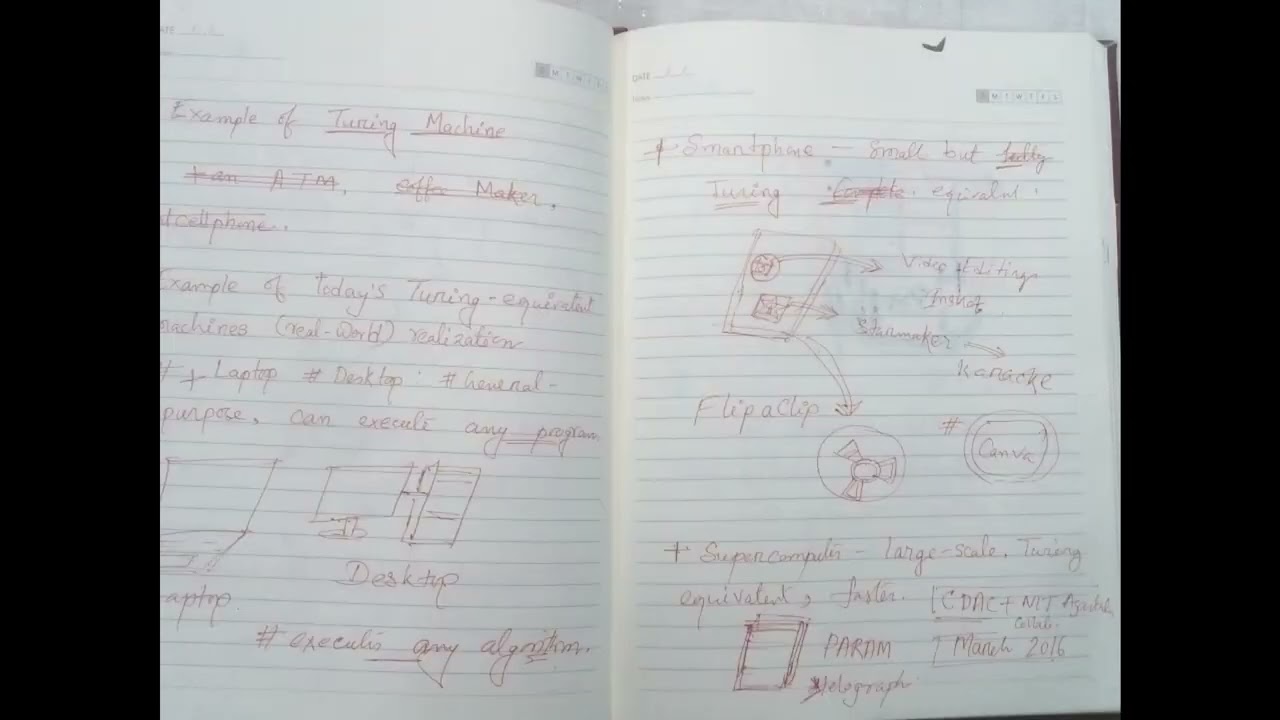 DATE
M T W F S
Example of Turing Machine
+ an ATM, coffe Maker,
cellphone.
Example of today's Turing-equivalent
machines (real-world) realization
# + Laptop # Desktop : # General-
purpose, can execute any program
Desktop
Laptop
# executes any algoritm.
DATE
M T W T F S
+ Smartphone - Small but fully
Turing Complete equivalent.
Video Editing
Inshot
Starmaker
Karaoke
FlipaClip
#
Canva
+ Supercomputer - large-scale, Turing
equivalent, faster. [CDAC + NIT
Collab.
PARAM
March 2016